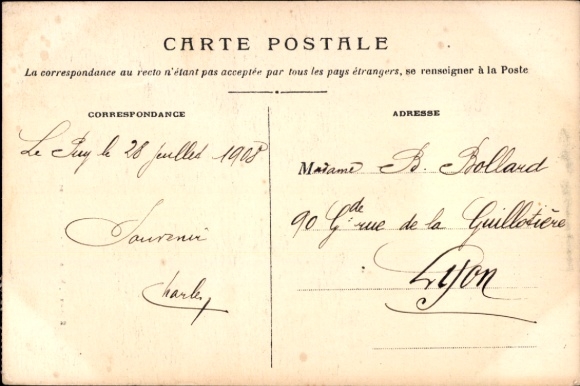 CARTE POSTALE
La correspondance au recto n'étant pas acceptée par tous les pays étrangers, se renseigner à la Poste
CORRESPONDANCE
Le Puy le 28 juillet 1908
Souvenir
Charles
ADRESSE
Madame B. Bollard
90 Gde rue de la Guillotière
Lyon